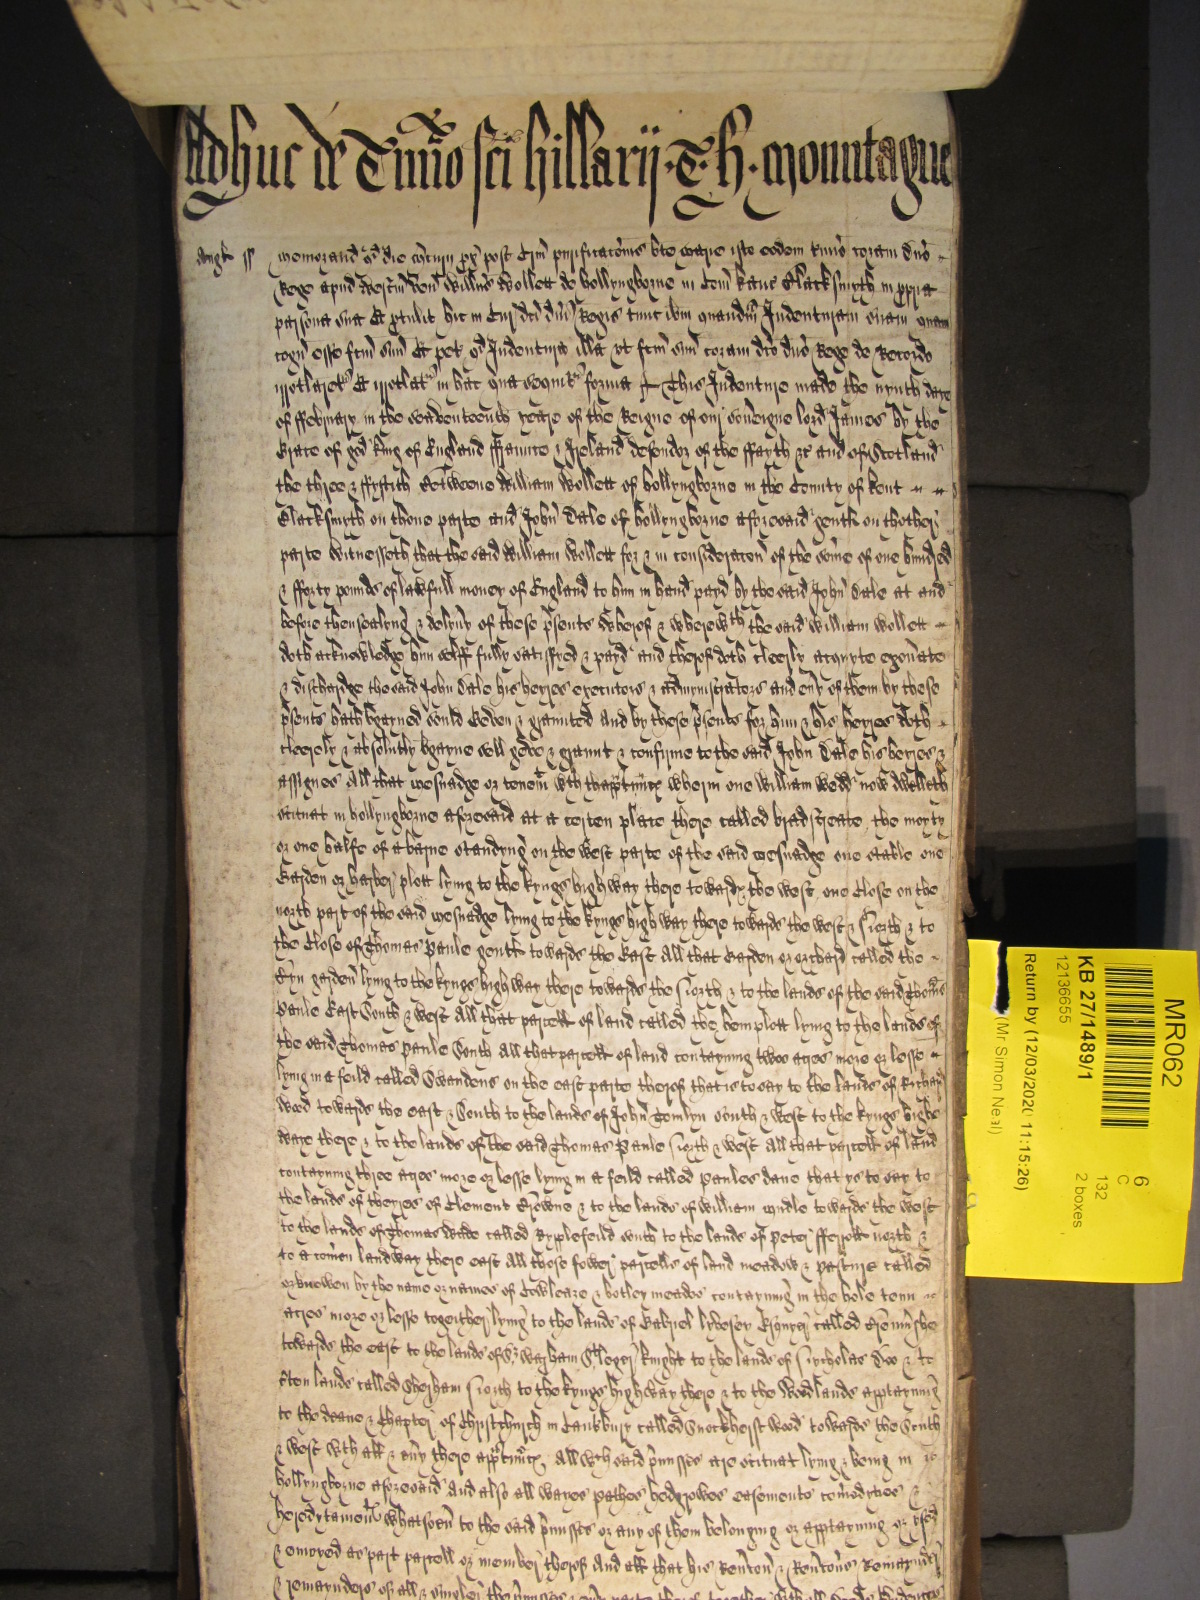 Adhuc de Termino sci hillarij T H Mountague
Angl ss Memorand qd die mercurij px post Crm purificacois bte marie isto eodem termio coram dno
Rege apud Westm ven Willms Wollett de hollyngborne in Com kanc Blacksmyth in ppria
persona sua Et ptulit hic in Cur dci dni Regis tunc ibm quandm Indenturam suam quam
cogn esse fcm suu Et pet qd Indentura illa vt fcm suu coram dco dno Rege de Recordo
irrotlaret Et irrotlat in hac qua sequit forma This Indenture made the nynth daye
of ffebruary in the seaventeenth yeare of the Reigne of our soveigne lord James by the
Grace of god king of England ffraunce & Ireland defendor of the ffayth &c and of Scotland
the three & ffyftith Betweene William Wollett of hollyngborne in the County of kent
Blacksmyth on thone parte and John Dale of hollyngborne aforesaid gentl on thother
parte Witnesseth that the said William Wollett for & in consideracon of the some of one hundred
& fforty pounds of lawfull money of England to him in hand payd by the said John Dale at and
before thensealyng & delyuy of these psents wherof & wherewth the said William Wollett
doth acknowledge him selff fully satisfyed & payd and therof doth cleerly acquyte exonate
& dischardge the said John Dale his heyres executors & admynistrators and euy of them by these
psents hath bgayned sould Geven & graunted And by these psents for him & his heyres doth
cleerely & absolutly bgayne sell geve & graunt & confirme to the said John Dale his heyres &
assignes All that mesuadge or tenemt wth thapptnncs wherin one William Webb now dwelleth
scituat in hollyngborne aforesaid at a certen place there called bradstreate the moyty
or one halfe of a barne standyng on the west parte of the said mesuadge one stable one
Garden or harber plott lying to the kyngs high way there towards the west one Close on the
north part of the said mesuadge lying to the kyngs high way there towards the west & North & to
the Close of Thomas Paule gentl towards the East All that Garden or orchard called the
garden lying to the kyngs high way there towards the North & to the lands of the said Thomas
Paule East South & west All that parcell of land called the hemplott lying to the lands of
the said Thomas Paule South All that parcell of land contayning twoo acres more or lesse
lying in a feild called Swandens on the east parte therof that is to say to the lands of Richard
Wood towards the east & South to the lands of John Tomlyn South & West to the kyngs highe
waye there & to the lands of the said Thomas Paule North & west All that parcell of land
contayning three acres more or lesse lying in a feild called Paules dane that ys to say to
the lands of theyres of Clement Browne & to the lands of William towards the west
to the lands of Thomas Wade called Applefeild south to the lands of Peter north &
to a comen landway there east All those fower parcells of land meadow & pasture called
or knowen by the name or names of Cowleaze & botley meades contayning in the hole tenn
acres more or lesse togeither lying to the lands of Gabriel Lyvesey Esquyer called
towards the east to the lands of Sr Warham St leger knight to the lands of Nycholas & to
cten lands called Sherham North to the kyngs high way there & to the Wood lands apptayning
to the deane & Chapter of Christchurch in Cantbury called Snockhurst wood towards the South
& West wth all & euy there apptnncs All wch said pmisses are scituat lying & being in
hollyngborne aforesaid And also all wayes pathes hedgrowes easements comodytyes &
heredytaments whatsoeu to the said pmisses or any of them belonging or apptayning or vsed
& enioyed as part parcell or member therof And all that his Revercon & Revercons Remaynder
& remaynders of all & singler the pmisses &
MR062
KB 27/1489/1
12136655
Return by (12/03/2020 11:15:26)
(Mr Simon Neal)
6
C
132
2 boxes